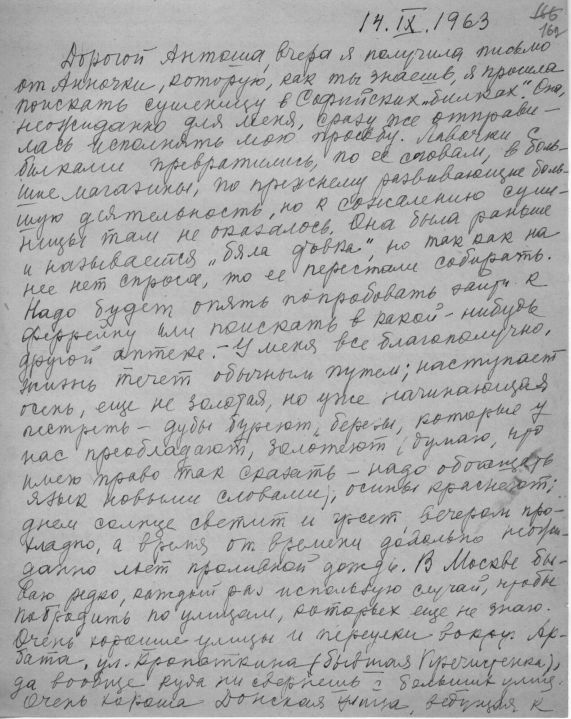 14.IX.1963
166
162
Дорогой Антоша, вчера я получила письмо
от Анночки, которую, как ты знаешь, я просила
поискать сушеницу в Софийских „билках". Она,
неожиданно для меня, сразу же отправи-
лась исполнять мою просьбу. Лавочки с
билками превратились, по ее словам, в боль-
шие магазины, по прежнему развивающие боль-
шую деятельность, но к сожалению суше-
ницы там не оказалось. Она была раньше
и называется „бяла", но так как на
нее нет спроса, то ее перестали собирать.
Надо будет опять попробовать зайти к
Феррейну или поискать в какой-нибудь
другой аптеке. – У меня все благополучно,
жизнь течет обычным путем; наступает
осень, еще не золотая, но уже начинающая
пестреть – дубы буреют, березы, которые у
нас преобладают, золотеют (думаю, что
имею право так сказать – надо обогащать
язык новыми словами), осины краснеют;
днем солнце светит и греет, вечером про-
хладно, а время от времени довольно неожи-
данно льет проливной дождь. В Москве бы-
ваю редко, каждый раз использую случай, чтобы
побродить по улицам, которых еще не знаю.
Очень хорошие улицы и переулки вокруг Ар-
бата, ул. Кропоткина (бывшая Пречистенка),
да вообще куда ни свернешь с больших улиц.
Очень хороша Донская улица, ведущая к